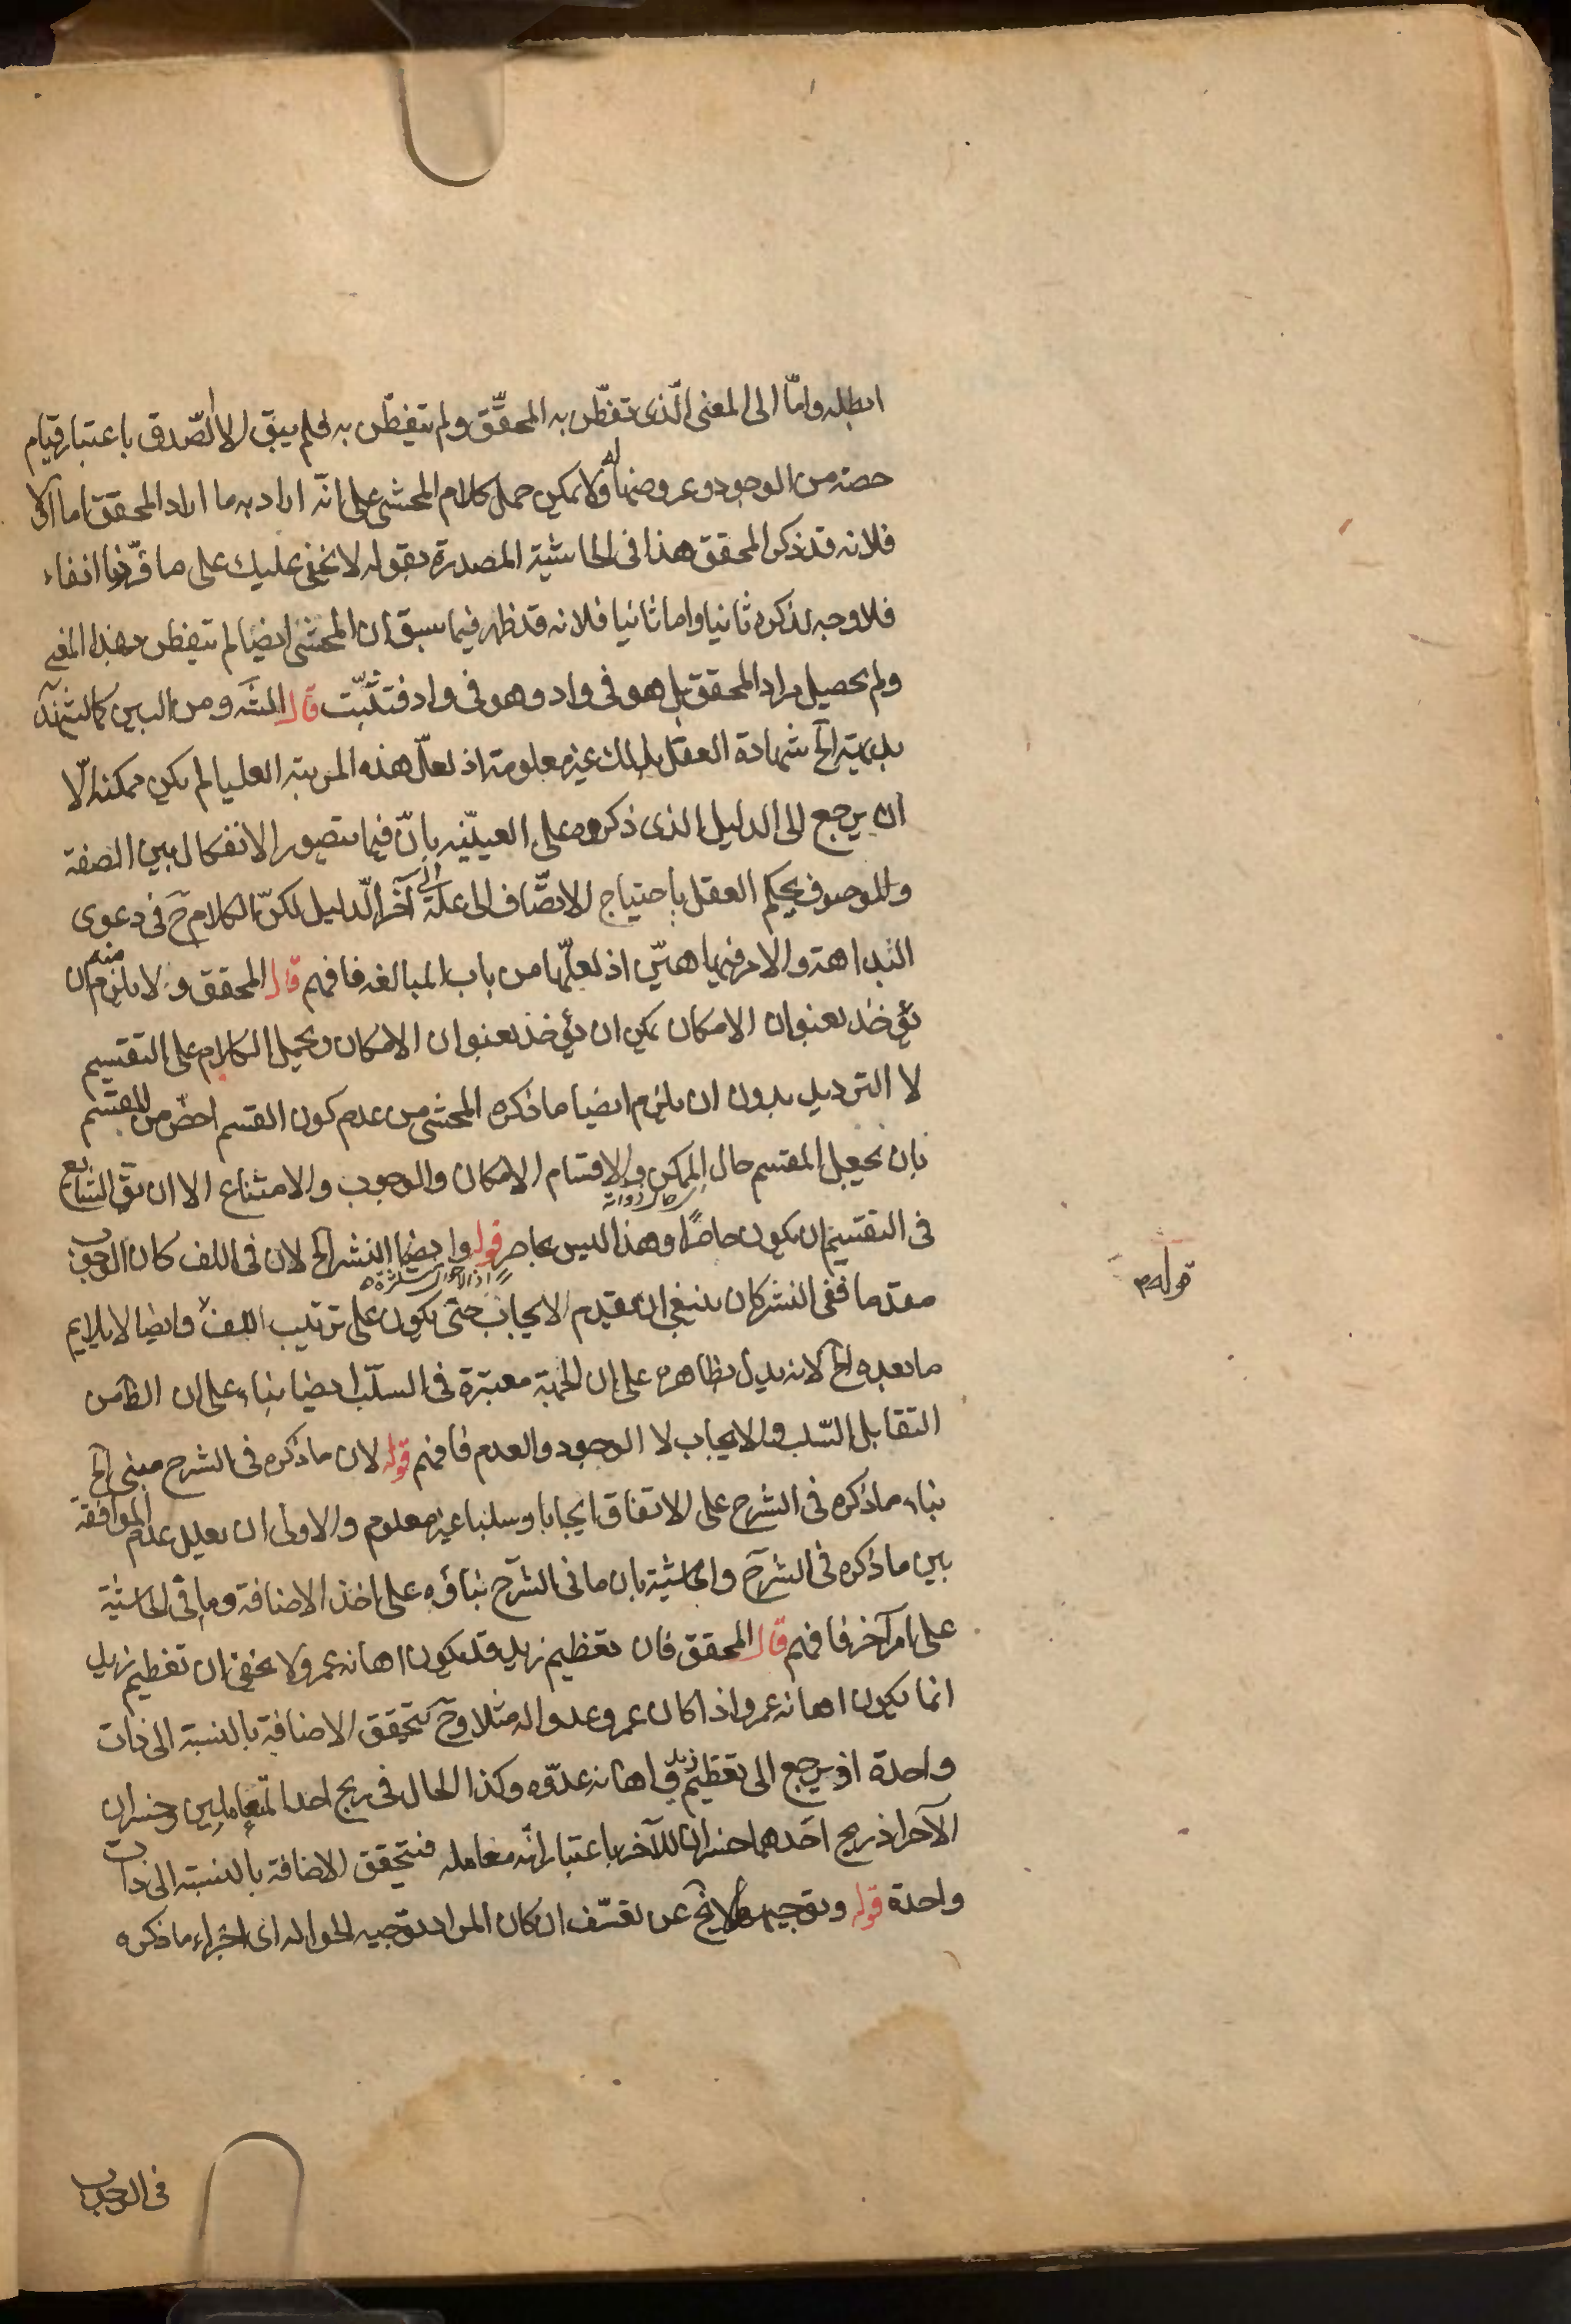 ابطله واما الى المعنى الّذى تفطّن به المحقّق ولم يتفطّن به فلم يبق الا الصّدق باعتبار قيام
حصة من الوجود وعروضها له ولا يمكن حمل كلام المحشى على انّه اراد به ما اراد المحقق اما اولا
فلانه قد ذكر المحقق هذا فى الحاشية المصدرة بقوله لا يخفى عليك على ما قرّرنا انفاء
فلا وجه لذكره ثانيا واما ثانيا فلانه قد ظهر فيما سبق ان المحشى ايضا لم يتفطن بهذا المعنى
ولم يحصيل مراد المحقق بل هو فى واد وهو فى واد فتثبّت قال الش ومن البين كما يشهد
بداهته الخ شهادة العقل بذلك غير معلومة اذ لعلّ هذه المرتبة العليا لم يكن ممكنه الّا
ان يرجع الى الدليل الذى ذكروه على العينيّه بانّ فيما يتصور الانفكاك بين الصفة
والموصوف يحكم العقل باحتياج الاتصّاف الى علّة الى آخر الّدليل لكنّ الكلام ح فى دعوى
البداهة والامر فيها هيّن اذ لعلّها من باب المبالغه فافهم قال المحقق ولا يلزم منه ان
يؤخذ بعنوان الامكان يمكن ان يؤخذ بعنوان الامكان ويحمل الكلام على التقسيم
لا الترديد بدون ان يلزم ايضا ما ذكره المحشى من عدم كون القسم اخصّ من المقسم
بان يجعل المقسم حال الممكن والاقسام الامكان والوجوب والامتناع الا ان يق الشايع
فى التقسيم ان يكون حاصرًا وهذا ليس بحاصر قوله وايضا النشر الخ لان فى اللف كان الوجوب
مقدما ففى النشر كان ينبغى ان يقدم الايجاب حتى يكون على ترتيب اللف وايضا لا يلايم
ما بعده الخ لانه يدل بظاهره على ان الجهة معتبرة فى السلب ايضا بناء على ان الظ من
التقابل السّلب والايجاب لا الوجود والعدم فافهم قوله لان ما ذكره فى الشرح مبنى الخ
بناء ما ذكره فى الشرح على الاتفاق ايجابا وسلبا غير معلوم والاولى ان يعلل عدم الموافقة
بين ما ذكره فى الشرح والحاشية بان ما فى الشرح بناؤه على اخذ الاضافة وما فى الحاشية
على امر آخر فافهم قال المحقق فان تعظيم زيد قد يكون اهانه عمرو لا يخفى ان تعظيم زيد
انما يكون اهانه عمرو اذا كان عمرو عدوا له مثلا وح يتحقق الاضافة بالنسبة الى ذات
واحدة اذ يرجع الى تعظيم زيد واهانه عدّوه وكذا الحال فى ربح احد المتعاملين وخسران
الآخر اذ ربح احدهما خسران للآخر باعتبار انّه معامله فيتحقق الاضافة بالنسبة الى ذات
واحدة قوله وتوجيهه لا يخ عن تعسّف ان كان المراد توجيه الحواله اى اجراء ما ذكره
فى الوجوب